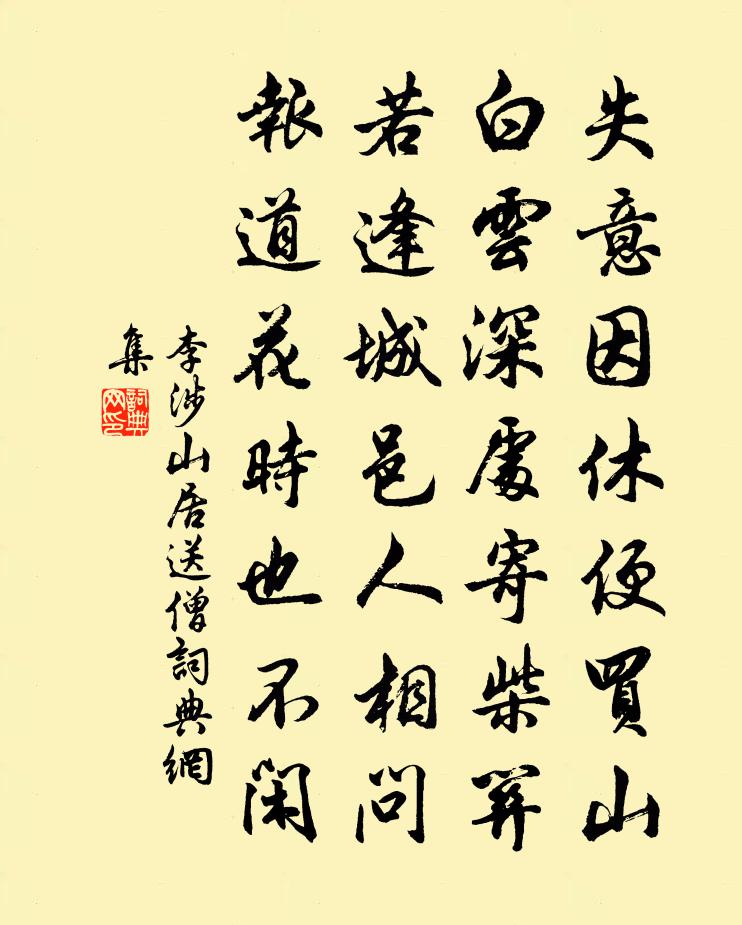 失意因休便買山
白雲深處寄柴關
若逢城邑人相問
報道花時也不閑
李涉山居送僧詞典網
集
詞典
网印